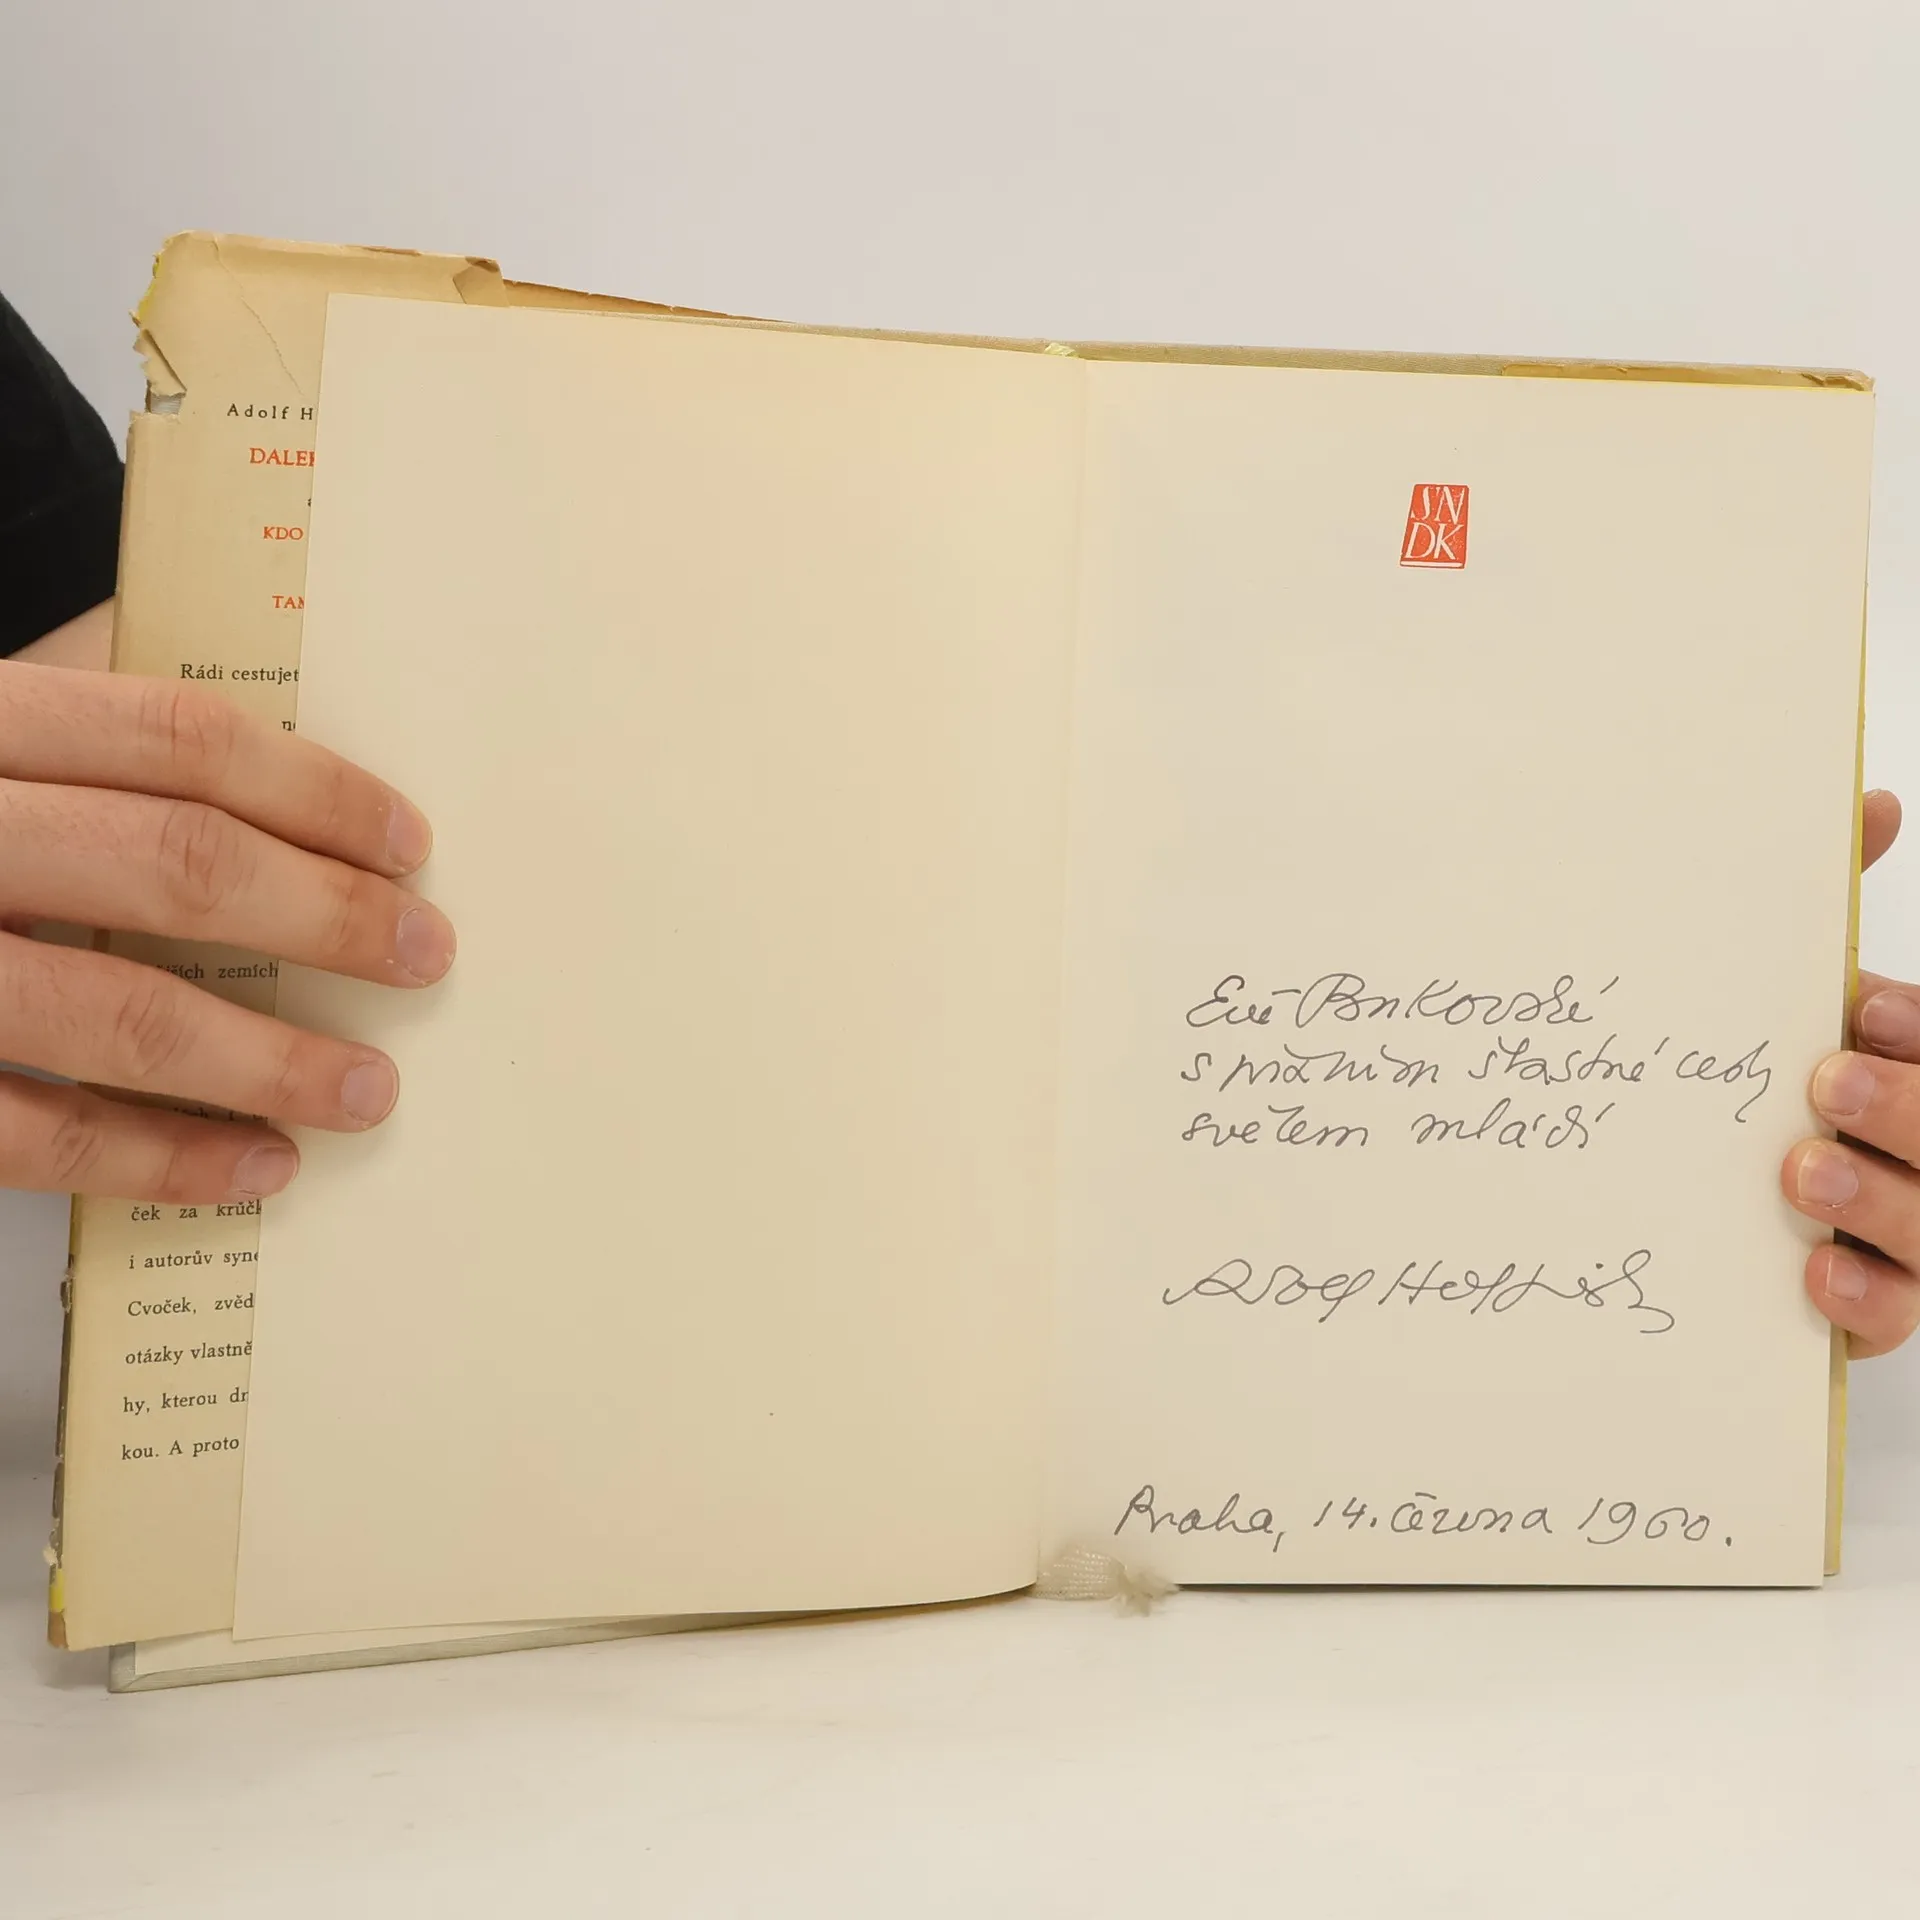 Adolf H
DALEK
KDO
TAM
Rádi cestujet
ne
ších zemích
ček za krůčk
i autorův syne
Cvoček, zvěd
otázky vlastně
hy, kterou dr
kou. A proto
SN
DK
Evě
s přáním šťastné cesty
světem mládí
Adolf Hoffmeister
Praha, 14. června 1960.